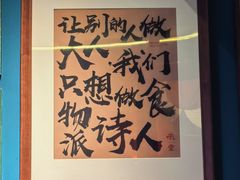 让别的人做
大人,我们
只想做食
物派诗人